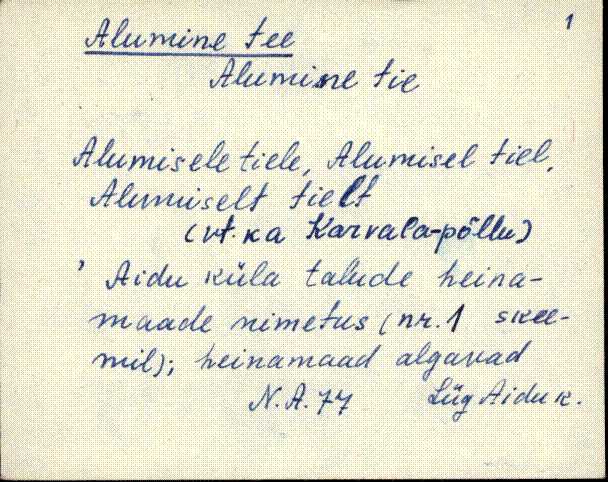 1
Alumine tee
Alumine tie
Alumisele tiele, Alumisel tiel,
Alumiselt tielt
(vt. ka Karvala-põllu)
' Aidu küla talude heina-
maade nimetus (nr. 1 skee-
mil); heinamaad algavad
N.A. 77 Lüg Aidu k.